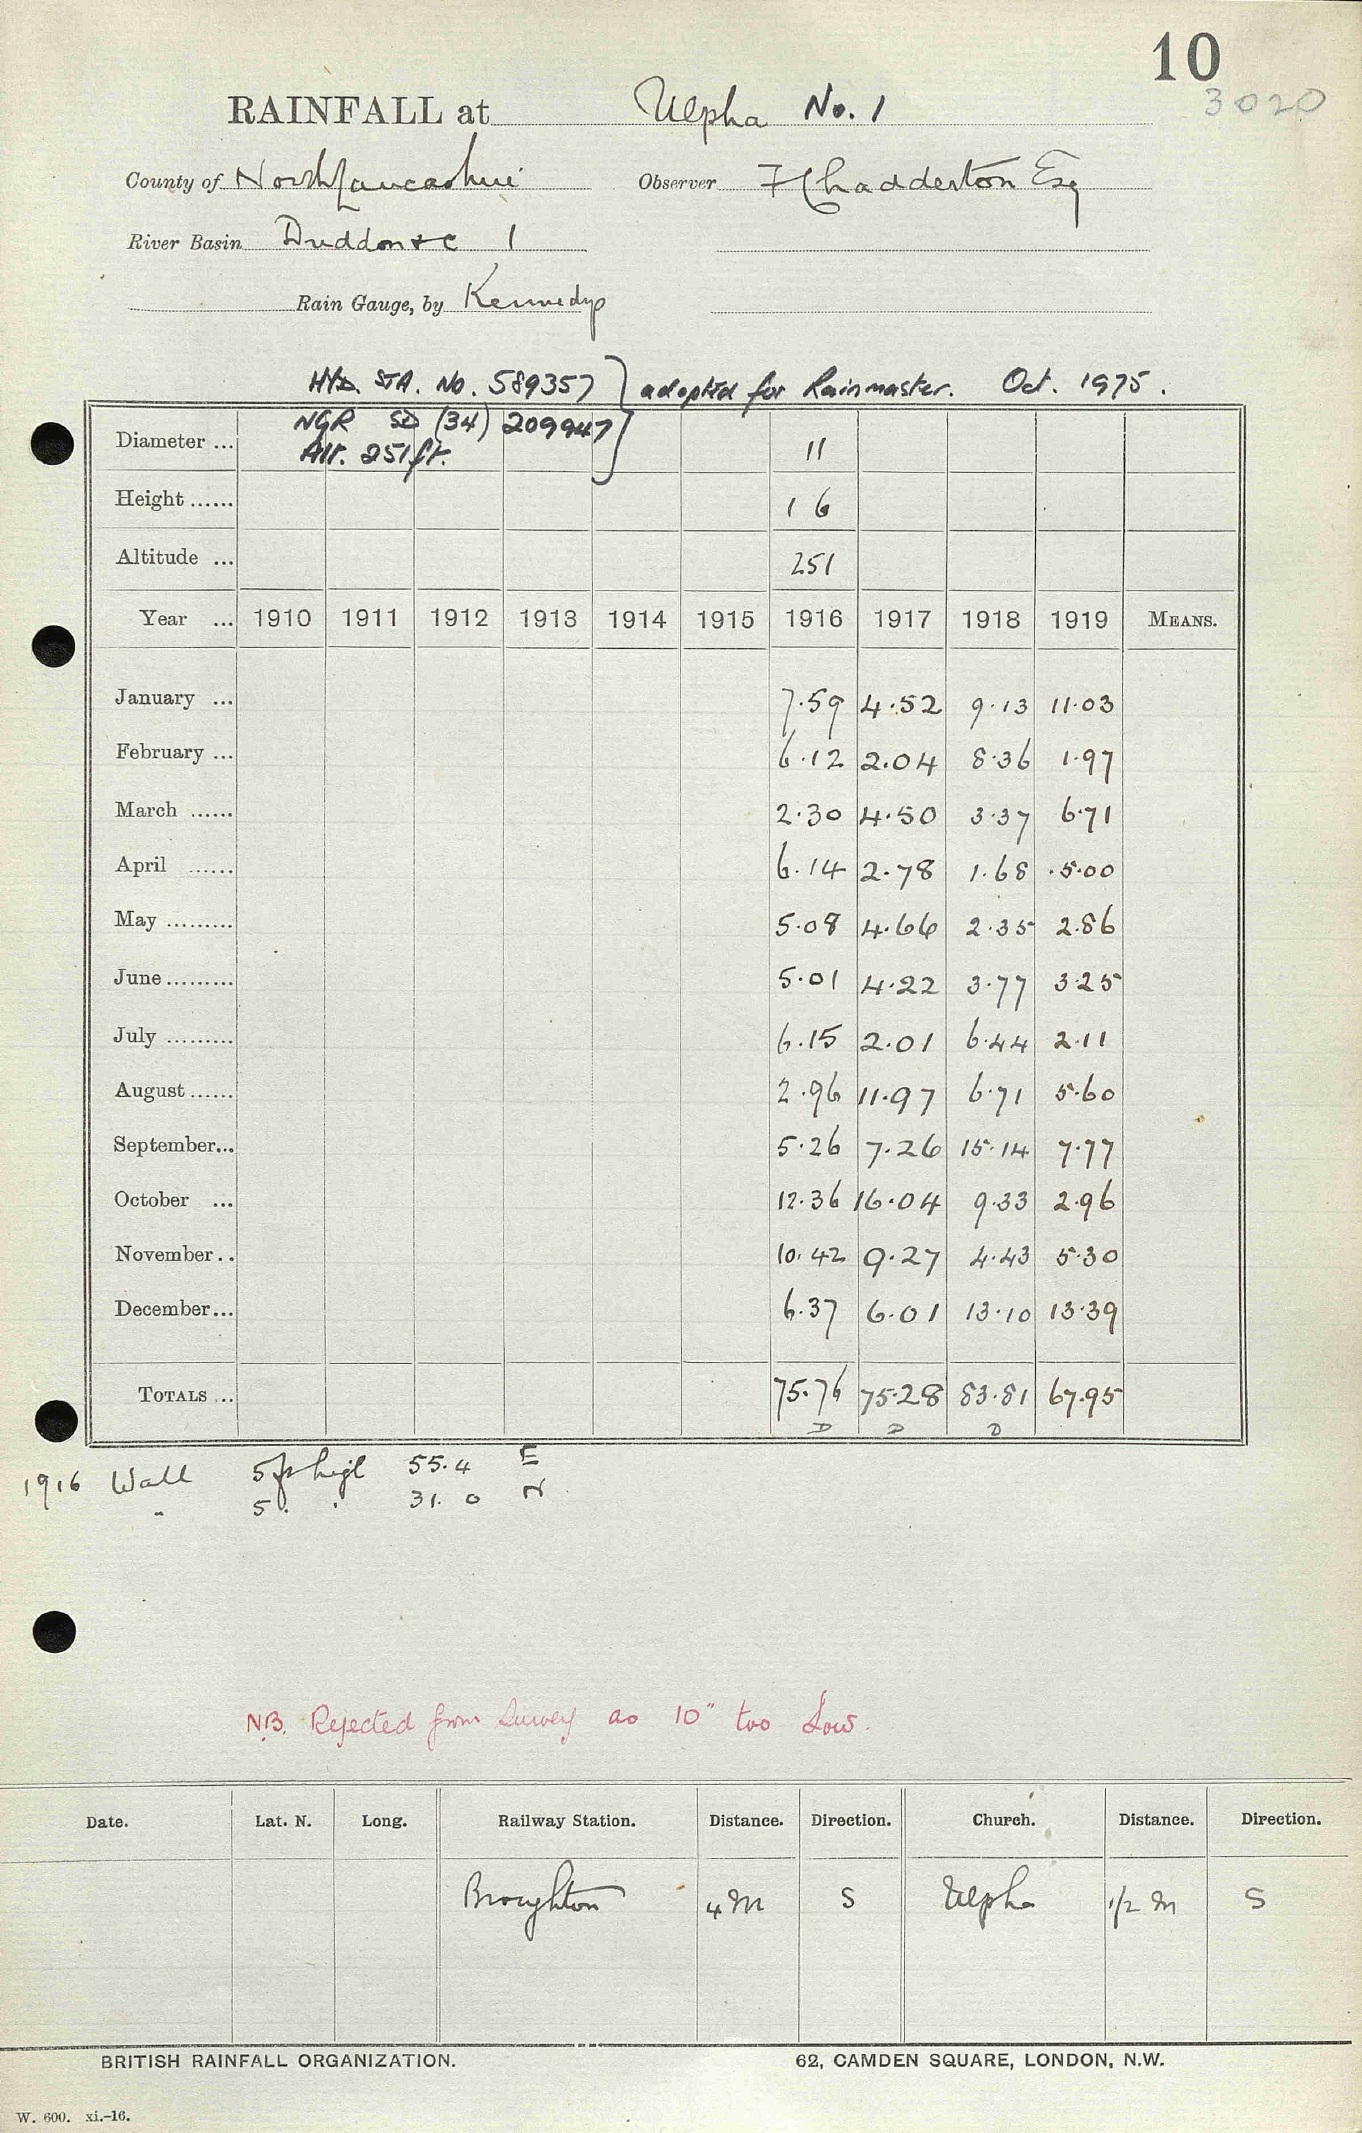 10
3020
RAINFALL at Ulpha No. 1
County of North Lancashire Observer F Chadderton Esq
River Basin Duddon &c 1
Rain Gauge, by Kennedy
Hyd. STA. No. 589357 } adopted for Rainmaster. Oct. 1975.
NGR SD (34) 209947
Alt. 251 ft.
Diameter ... 11
Height ...... 1 6
Altitude ... 251
Year ... 1910 1911 1912 1913 1914 1915 1916 1917 1918 1919 MEANS.
January ... 7.59 4.52 9.13 11.03
February ... 6.12 2.04 8.36 1.97
March ...... 2.30 4.50 3.37 6.71
April ...... 6.14 2.78 1.68 .5.00
May ......... 5.08 4.66 2.35 2.86
June ......... 5.01 4.22 3.77 3.25
July ......... 6.15 2.01 6.44 2.11
August ...... 2.96 11.97 6.71 5.60
September... 5.26 7.26 15.14 7.77
October ... 12.36 16.04 9.33 2.96
November .. 10.42 9.27 4.43 5.30
December... 6.37 6.01 13.10 13.39
TOTALS ... 75.76 75.28 83.81 67.95
D D D
1916 Wall 5ft high 55.4 E
" 5. " 31. 0 N
NB. Rejected from Survey as 10" too Low.
Date. Lat. N. Long. Railway Station. Distance. Direction. Church. Distance. Direction.
Broughton 4 M S Ulpha 1/2 M S
BRITISH RAINFALL ORGANIZATION. 62, CAMDEN SQUARE, LONDON, N.W.
W. 600. xi.-16.